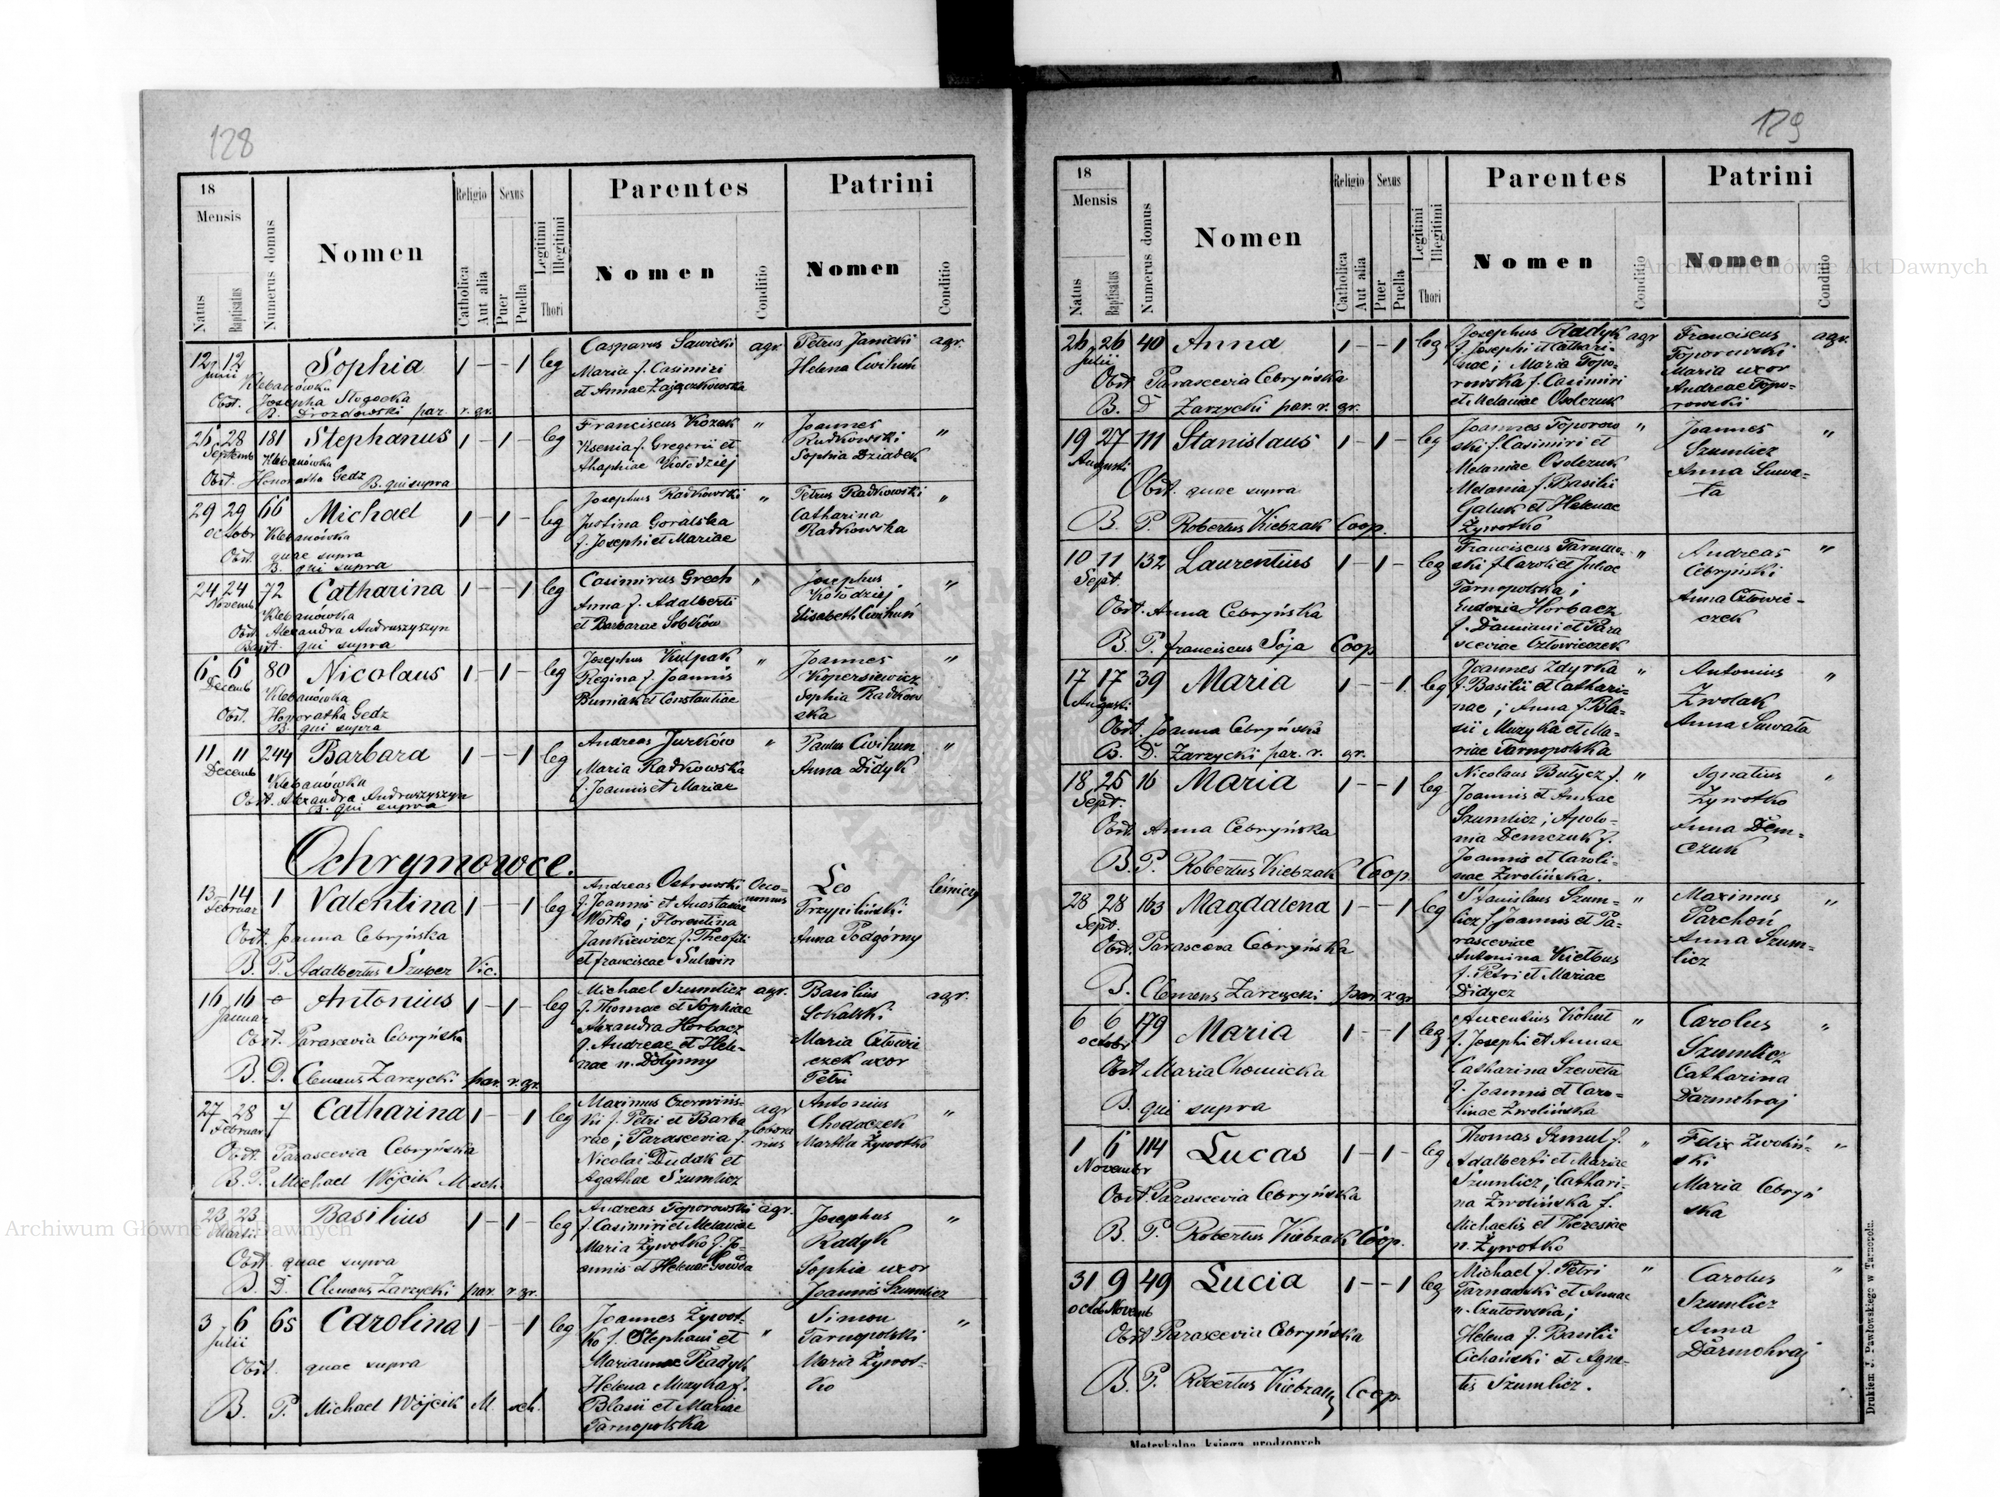 128
18
Mensis
Natus
Baptisatus
Numerus domus
Nomen
Religio
Catholica
Aut alia
Sexus
Puer
Puella
Legitimi
Illegitimi
Thori
Parentes
Nomen
Conditio
Patrini
Nomen
Conditio
12 12 Sophia 1 – – 1 leg Casparus Sawicki agr. Petrus Janicki agr.
Junii Klebanówka Maria f. Casimiri Helena Cwihun
Obst. Josepha Stogocka et Annae Zajączkowska
B. Drozdowski par. r. gr.
25 28 181 Stephanus 1 – 1 – leg Franciscus Kozak " Joannes "
Septemb Klebanówka Ksenia f. Gregorii et Radkowski
Obst. Honoratha Gedz B. qui supra Ahaphiae Kołodziej Sophia Dziadek
29 29 66 Michael 1 – 1 – leg Josephus Radkowski " Petrus Radkowski "
Octobr Klebanówka Justina Goralska Catharina
Obst. quae supra f. Josephi et Mariae Radkowska
B. qui supra
24 24 72 Catharina 1 – – 1 leg Casimirus Grech " Josephus "
Novemb Klebanówka Anna f. Adalberti Kołodziej
Obst. Alexandra Andruszyszyn et Barbarae Sobków Elisabeth Cwihuń
Bapt. qui supra
6 6 80 Nicolaus 1 – 1 – leg Josephus Kulpak " Joannes "
Decemb Klebanówka Regina f. Joannis Kopersiewicz
Obst. Honoratha Gedz Buniak et Constantiae Sophia Radkow
B. qui supra ska
11 11 244 Barbara 1 – – 1 leg Andreas Jurków " Paulus Cwihun "
Decemb Klebanówka Maria Radkowska Anna Didyk
Obst. Alexandra Andruszyszyn f. Joannis et Mariae
B. qui supra
Ochrymowce.
13 14 1 Valentina 1 – – 1 leg Andreas Ostrowski Oeco- Leo leśniczy
Februar f. Joannis et Anastasiae nomus Przypiliński
Obst. Joanna Cebryńska Wołko; Florentina Anna Podgórny
B. P. Adalbertus Szuber Vic. Jankiewicz f. Theofili
et Franciscae Sulwin
16 16 Antonius 1 – 1 – leg Michael Szumlicz agr. Basilius agr.
Januar f. Thomae et Sophiae Sokalski
Obst. Parascevia Cebryńska Alexandra Horbacz Maria Człowie
B. D. Clemens Zarzycki par. r. gr. f. Andreae et Hele- czek uxor
nae n. Dołynny Petri
27 28 7 Catharina 1 – – 1 leg Maximus Czerwińs- agr Antonius "
Februar kii f. Petri et Barba Chodaczek
Obst. Parascevia Cebryńska rae; Parascevia f. Martha Żywotko
B. P. Michael Wójcik M. sch. Nicolai Dudak et
Agathae Szumlicz
23 23 Basilius 1 – 1 – leg Andreas Toporowski agr. Josephus "
Martii f. Casimiri et Melaniae Radyk
Obst. quae supra Maria Żywotko f. Jo- Sophia uxor
B. D. Clemens Zarzycki par. r. gr. annis et Helenae Gowda Joannis Szumlicz
3 6 65 Carolina 1 – – 1 leg Joannes Żywot- " Simon "
Julii ko f. Stephani et Tarnopolski
Obst. quae supra Mariannae Radyk Maria Żywot-
B. P. Michael Wójcik M. sch. Helena Muzyka f. ko
Blasii et Mariae
Tarnopolska
129
18
Mensis
Natus
Baptisatus
Numerus domus
Nomen
Religio
Catholica
Aut alia
Sexus
Puer
Puella
Legitimi
Illegitimi
Thori
Parentes
Nomen
Conditio
Patrini
Nomen
Conditio
26 26 40 Anna 1 – – 1 leg Josephus Radyk agr Franciscus agr.
Julii f. Josephi et Cathari- Toporowski
Obst. Parascevia Cebryńska nae; Maria Topo- Maria uxor
B. D Zarzycki par. r. gr. rowska f. Casimiri Andreae Topo-
et Melaniae Osolczuk rowski
19 27 111 Stanislaus 1 – 1 – leg Joannes Toporow " Joannes "
Augusti ski f. Casimiri et Szumlicz
Obst. quae supra Melaniae Osolczuk Anna Suwa-
B. P. Robertus Kiebzak Coop. Melania f. Basilii ła
Galuk et Helenae
Żywotko
10 11 132 Laurentius 1 – 1 – leg Franciscus Tarnaw- " Andreas "
Sept. ski f. Caroli et Juliae Cebryński
Obst. Anna Cebryńska Tarnopolska; Anna Człowie-
B. P. Franciscus Soja Coop Eudoxia Horbacz czek
f. Damiani et Para
sceviae Człowieczek
17 17 39 Maria 1 – – 1. leg Joannes Zdyrka " Antonius "
Augusti f. Basilii et Cathari- Zwolak
Obst. Joanna Cebryńska nae; Anna f. Bla- Anna Suwała
B. D. Zarzycki par. r. gr. sii Muzyka et Ma-
riae Tarnopolska
18 25 16 Maria 1 – – 1 leg Nicolaus Butycz f. " Ignatius "
Sept. Joannis et Annae Żywotko
Obst. Anna Cebryńska Szumlicz; Apolo- Anna Dem-
B. P. Robertus Kiebzak Coop. nia Demczuk f. czuk
Joannis et Caroli-
nae Zwolińska.
28 28 163 Magdalena 1 – – 1 leg Stanislaus Szum- " Maximus "
Sept. licz f. Joannis et Pa- Parchoń
Obst. Parascevia Cebryńska rasceviae Anna Szum-
B. Clemens Zarzycki par. r. gr. Antonina Kiełbus licz
f. Petri et Mariae
Didycz
6 6 179 Maria 1 – – 1 leg Auxentius Kohut " Carolus "
Octobr f. Josephi et Annae Szumlicz
Obst. Maria Chomicka Catharina Szeweta Catharina
B. qui supra f. Joannis et Caro- Darmohraj
linae Zwolińska
1 6 114 Lucas 1 – 1 – leg Thomas Szmul f. " Felix Zwoliń- "
Novembr Adalberti et Mariae ski
Obst. Parascevia Cebryńska Szumlicz; Cathari- Maria Cebryń
B. P. Robertus Kiebzak Coop. na Zwolińska f. ska
Michaelis et Theresiae
n. Żywotko
31 9 49 Lucia 1 – – 1 leg Michael f. Petri " Carolus "
Octob Novemb Tarnawski et Annae Szumlicz
Obst. Parascevia Cebryńska n. Czutowska; Anna
B. P. Robertus Kiebzak Coop. Helena f. Basilii Darmohraj
Cichański et Agne-
tis Szumlicz.
Drukiem J. Pawłowskiego w Tarnopolu.
Metrykalna księga urodzonych
Archiwum Główne Akt Dawnych
Archiwum Główne Akt Dawnych